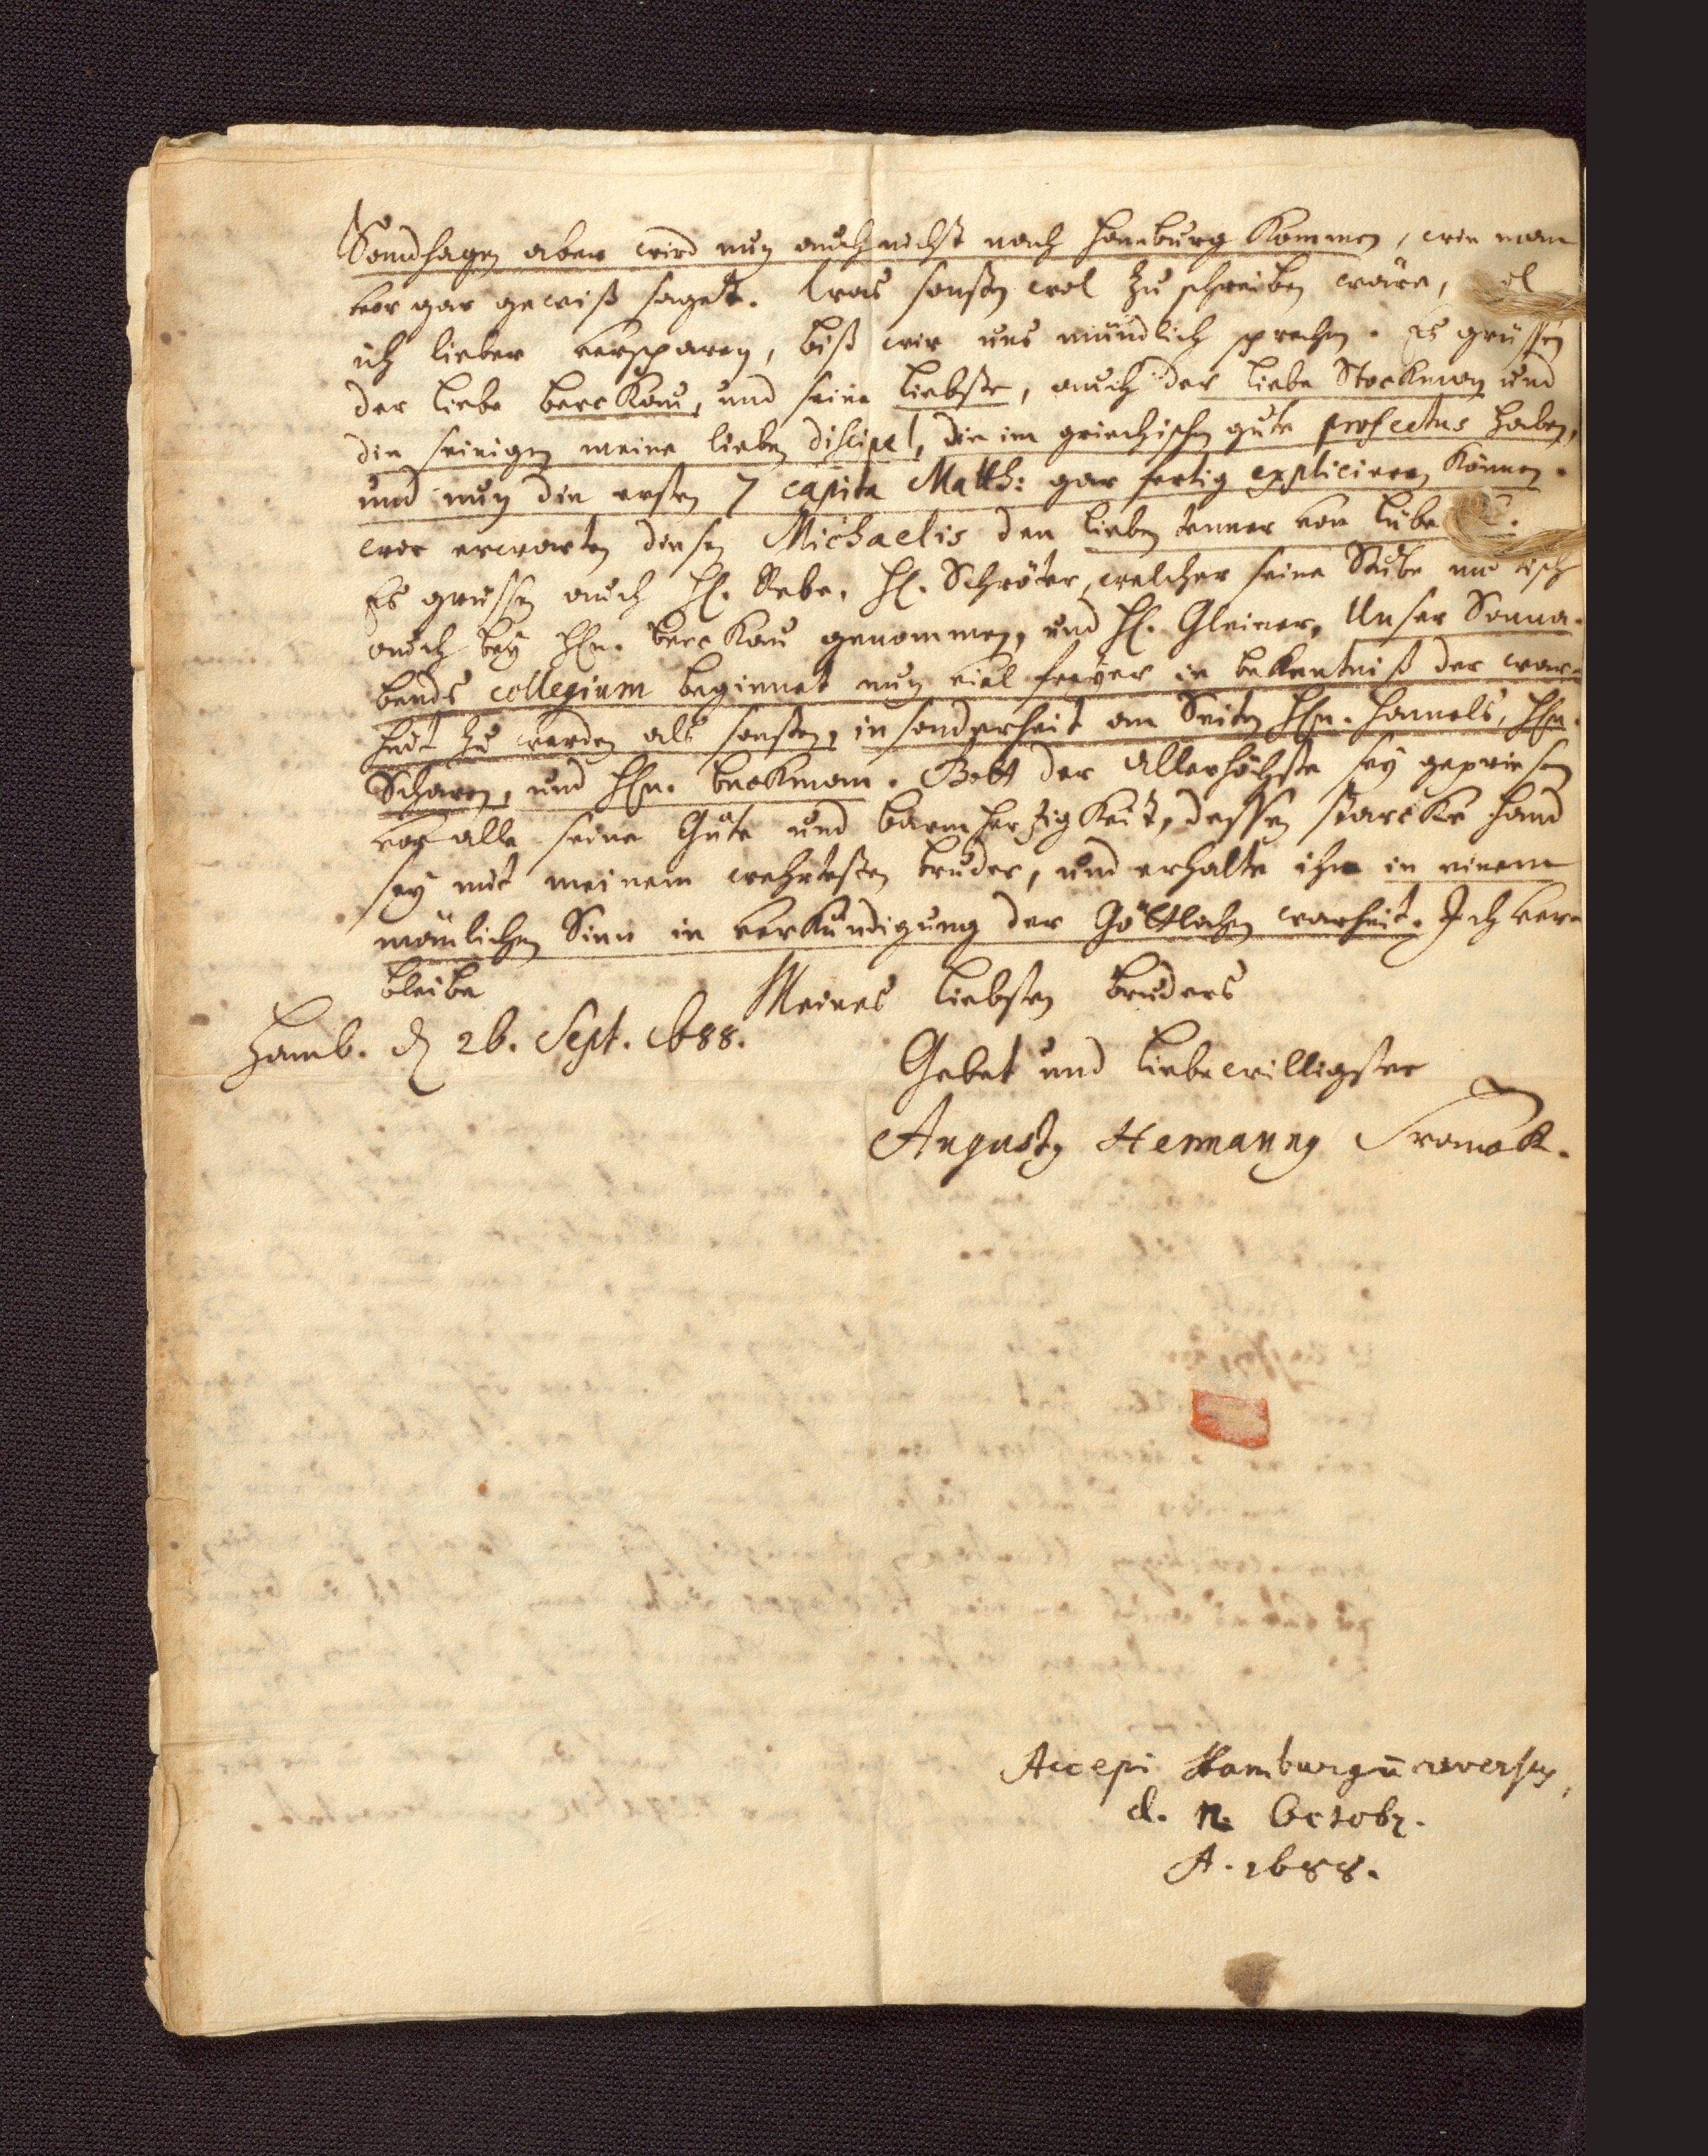 Sandhagen aber wird nun auch nicht nach Hamburg kommen, wie man
vor gar gewiß saget. Was sonsten wol zu schreiben wäre,
ich lieber versparen, biß wir uns mündlich sprechen. Es grüssen
der liebe Berckau, und seine Liebste, auch der liebe Stockman und
die seinigen meine lieben discipel, die im griechischen gute profectus haben,
und nun die ersten 7 capita Matth: gar fertig expliciren können.
wir erwarten diesen Michaelis den lieben von Lübe
Es grüssen auch H. Rebe, H. Schröter, welcher seine Stube und tisch
auch bey Hn. Berckau genommen, und H. Gleiner, Unser Sonna-
bends collegium beginnet nun viel freyer in bekentniß der war-
heit zu werden als sonsten, insonderheit an Seiten Hn. Hn.
Scharen, und Hn. Beckmann. Gott der Allerhöchste sey gepriesen
vor alle seine Güte und barmhertzigkeit, dessen starcke Hand
sey mit meinem wehrtesten bruder, und erhalte ihn in einem
mänlichen Sinn in verkündigung der Göttlichen warheit. Ich ver-
bleibe
Meines liebsten bruders
Hamb. d 26. Sept. 1688.
Gebet und liebewilligster
Augusty Hermanny Franck.
Accepi Hamburgū reversus,
d. 12. Octobr.
A. 1688.